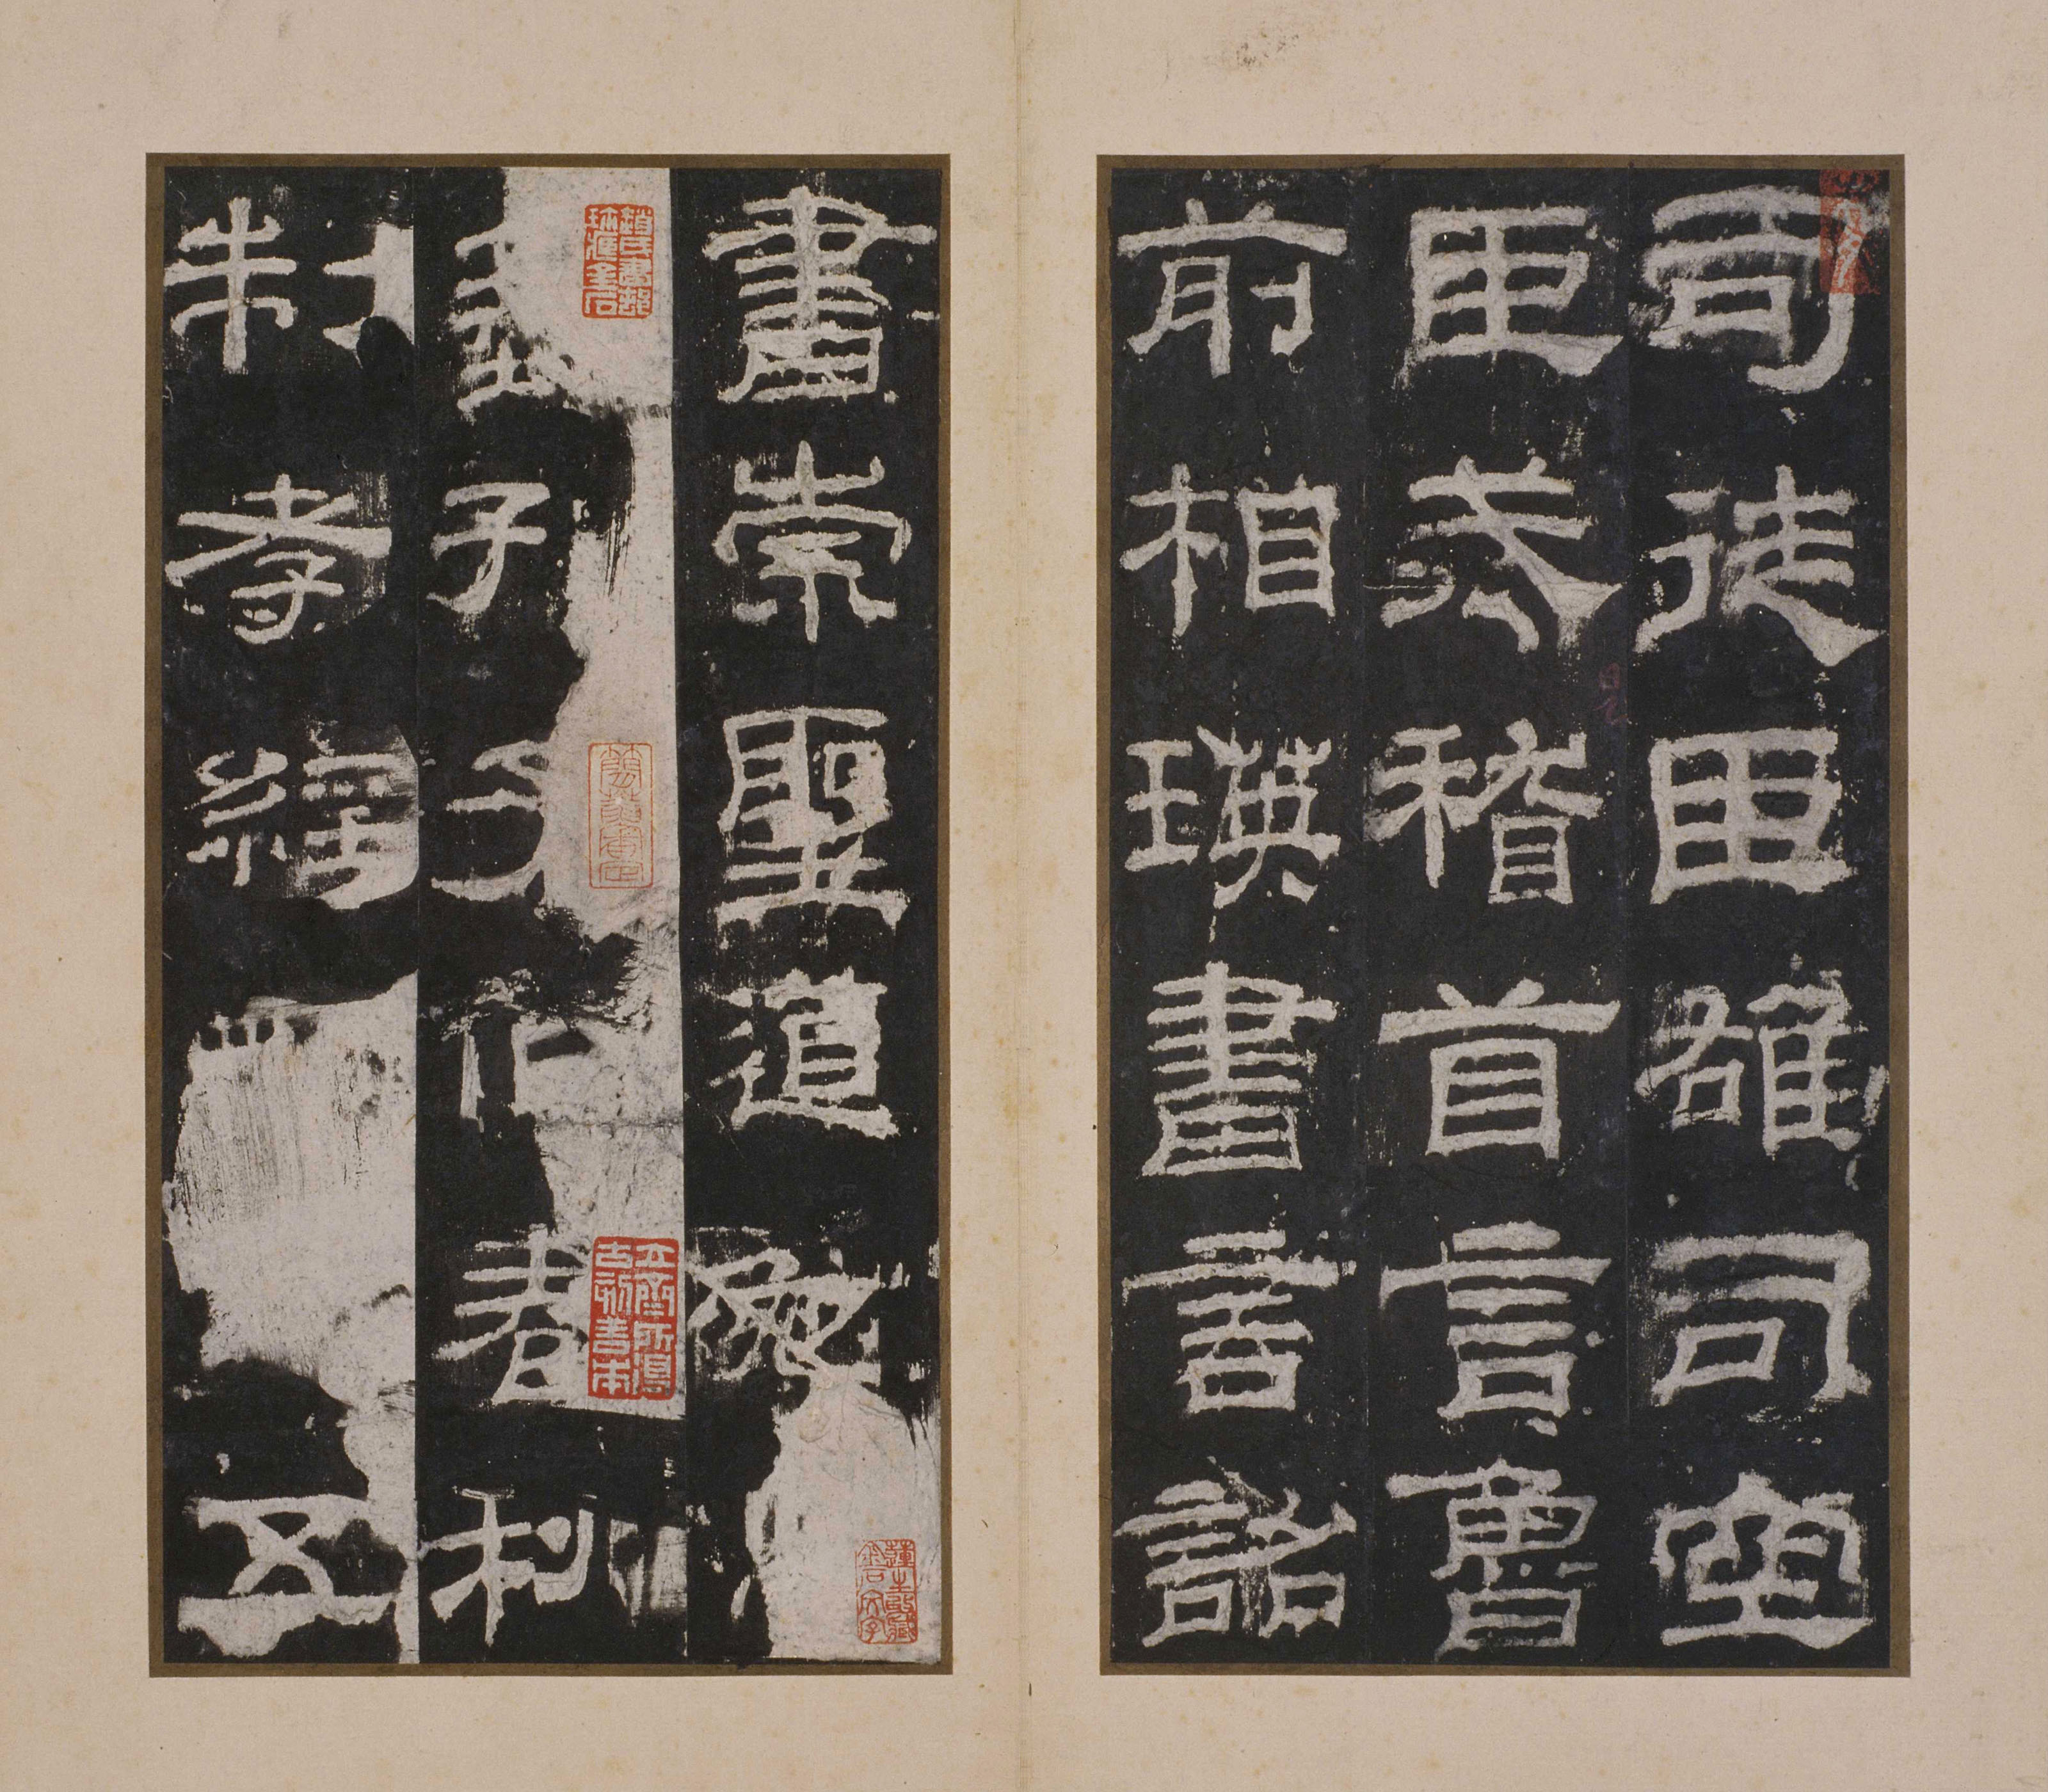 司徒臣雄司空
臣戒稽首言魯
前相瑛書言詔
書崇聖道勉
埶孔子作春秋
制孝經五